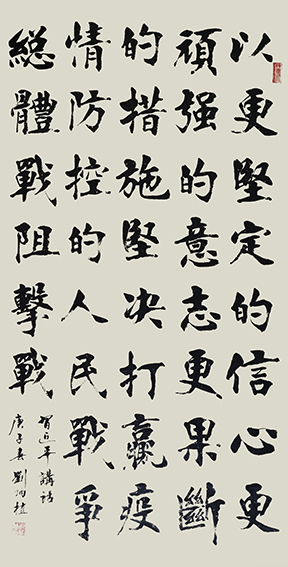 以更堅定的信心更
頑强的意志更果斷
的措施堅决打贏疫
情防控的人民戰爭
緫體戰阻擊戰
習近平講話
庚子春劉